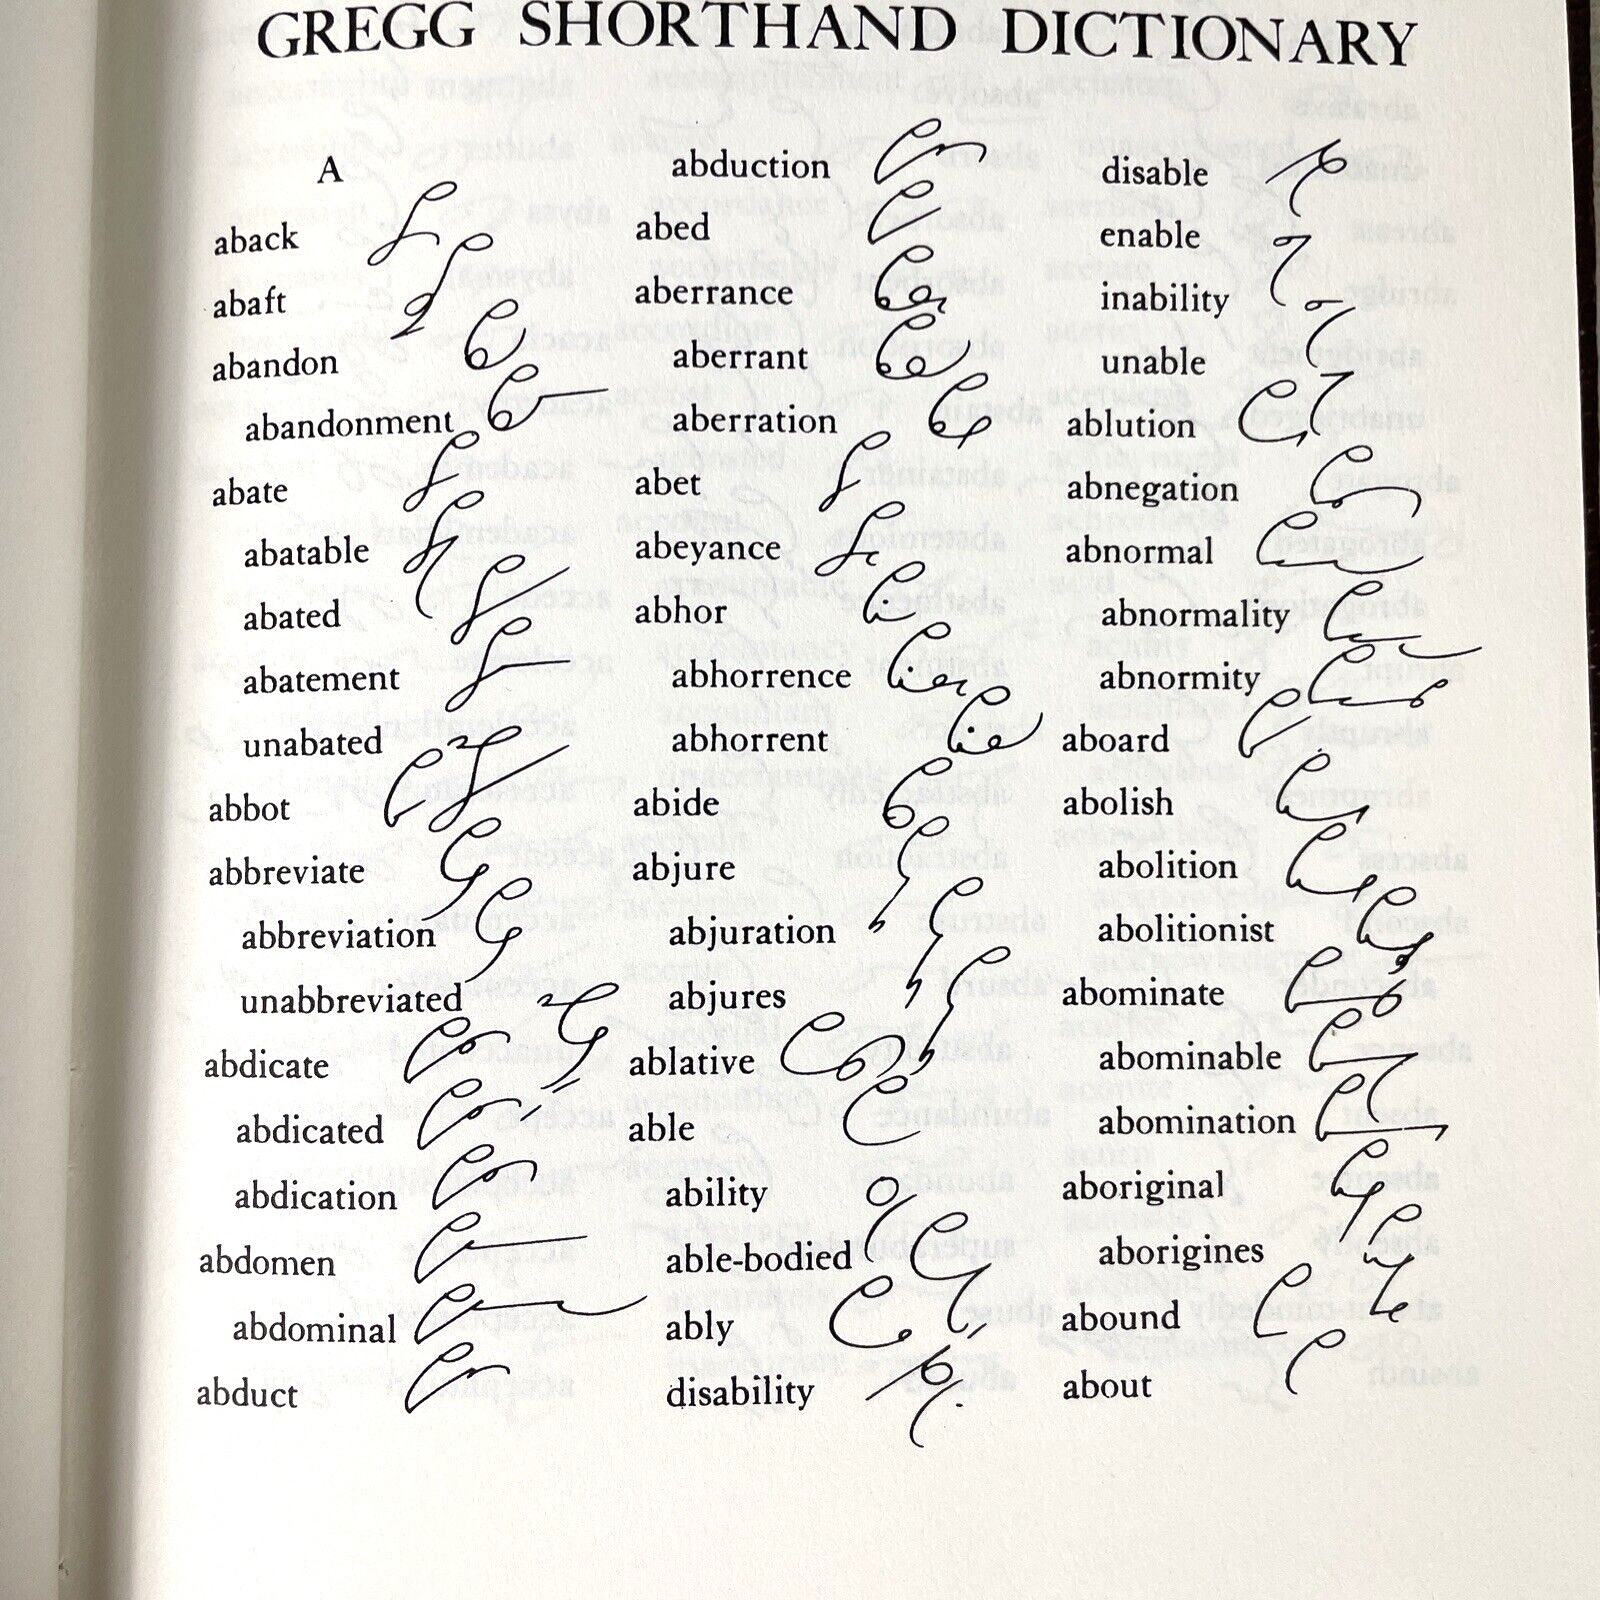 GREGG SHORTHAND DICTIONARY
A
aback
abaft
abandon
abandonment
abate
abatable
abated
abatement
unabated
abbot
abbreviate
abbreviation
unabbreviated
abdicate
abdicated
abdication
abdomen
abdominal
abduct
abduction
abed
aberrance
aberrant
aberration
abet
abeyance
abhor
abhorrence
abhorrent
abide
abjure
abjuration
abjures
ablative
able
ability
able-bodied
ably
disability
disable
enable
inability
unable
ablution
abnegation
abnormal
abnormality
abnormity
aboard
abolish
abolition
abolitionist
abominate
abominable
abomination
aboriginal
aborigines
abound
about